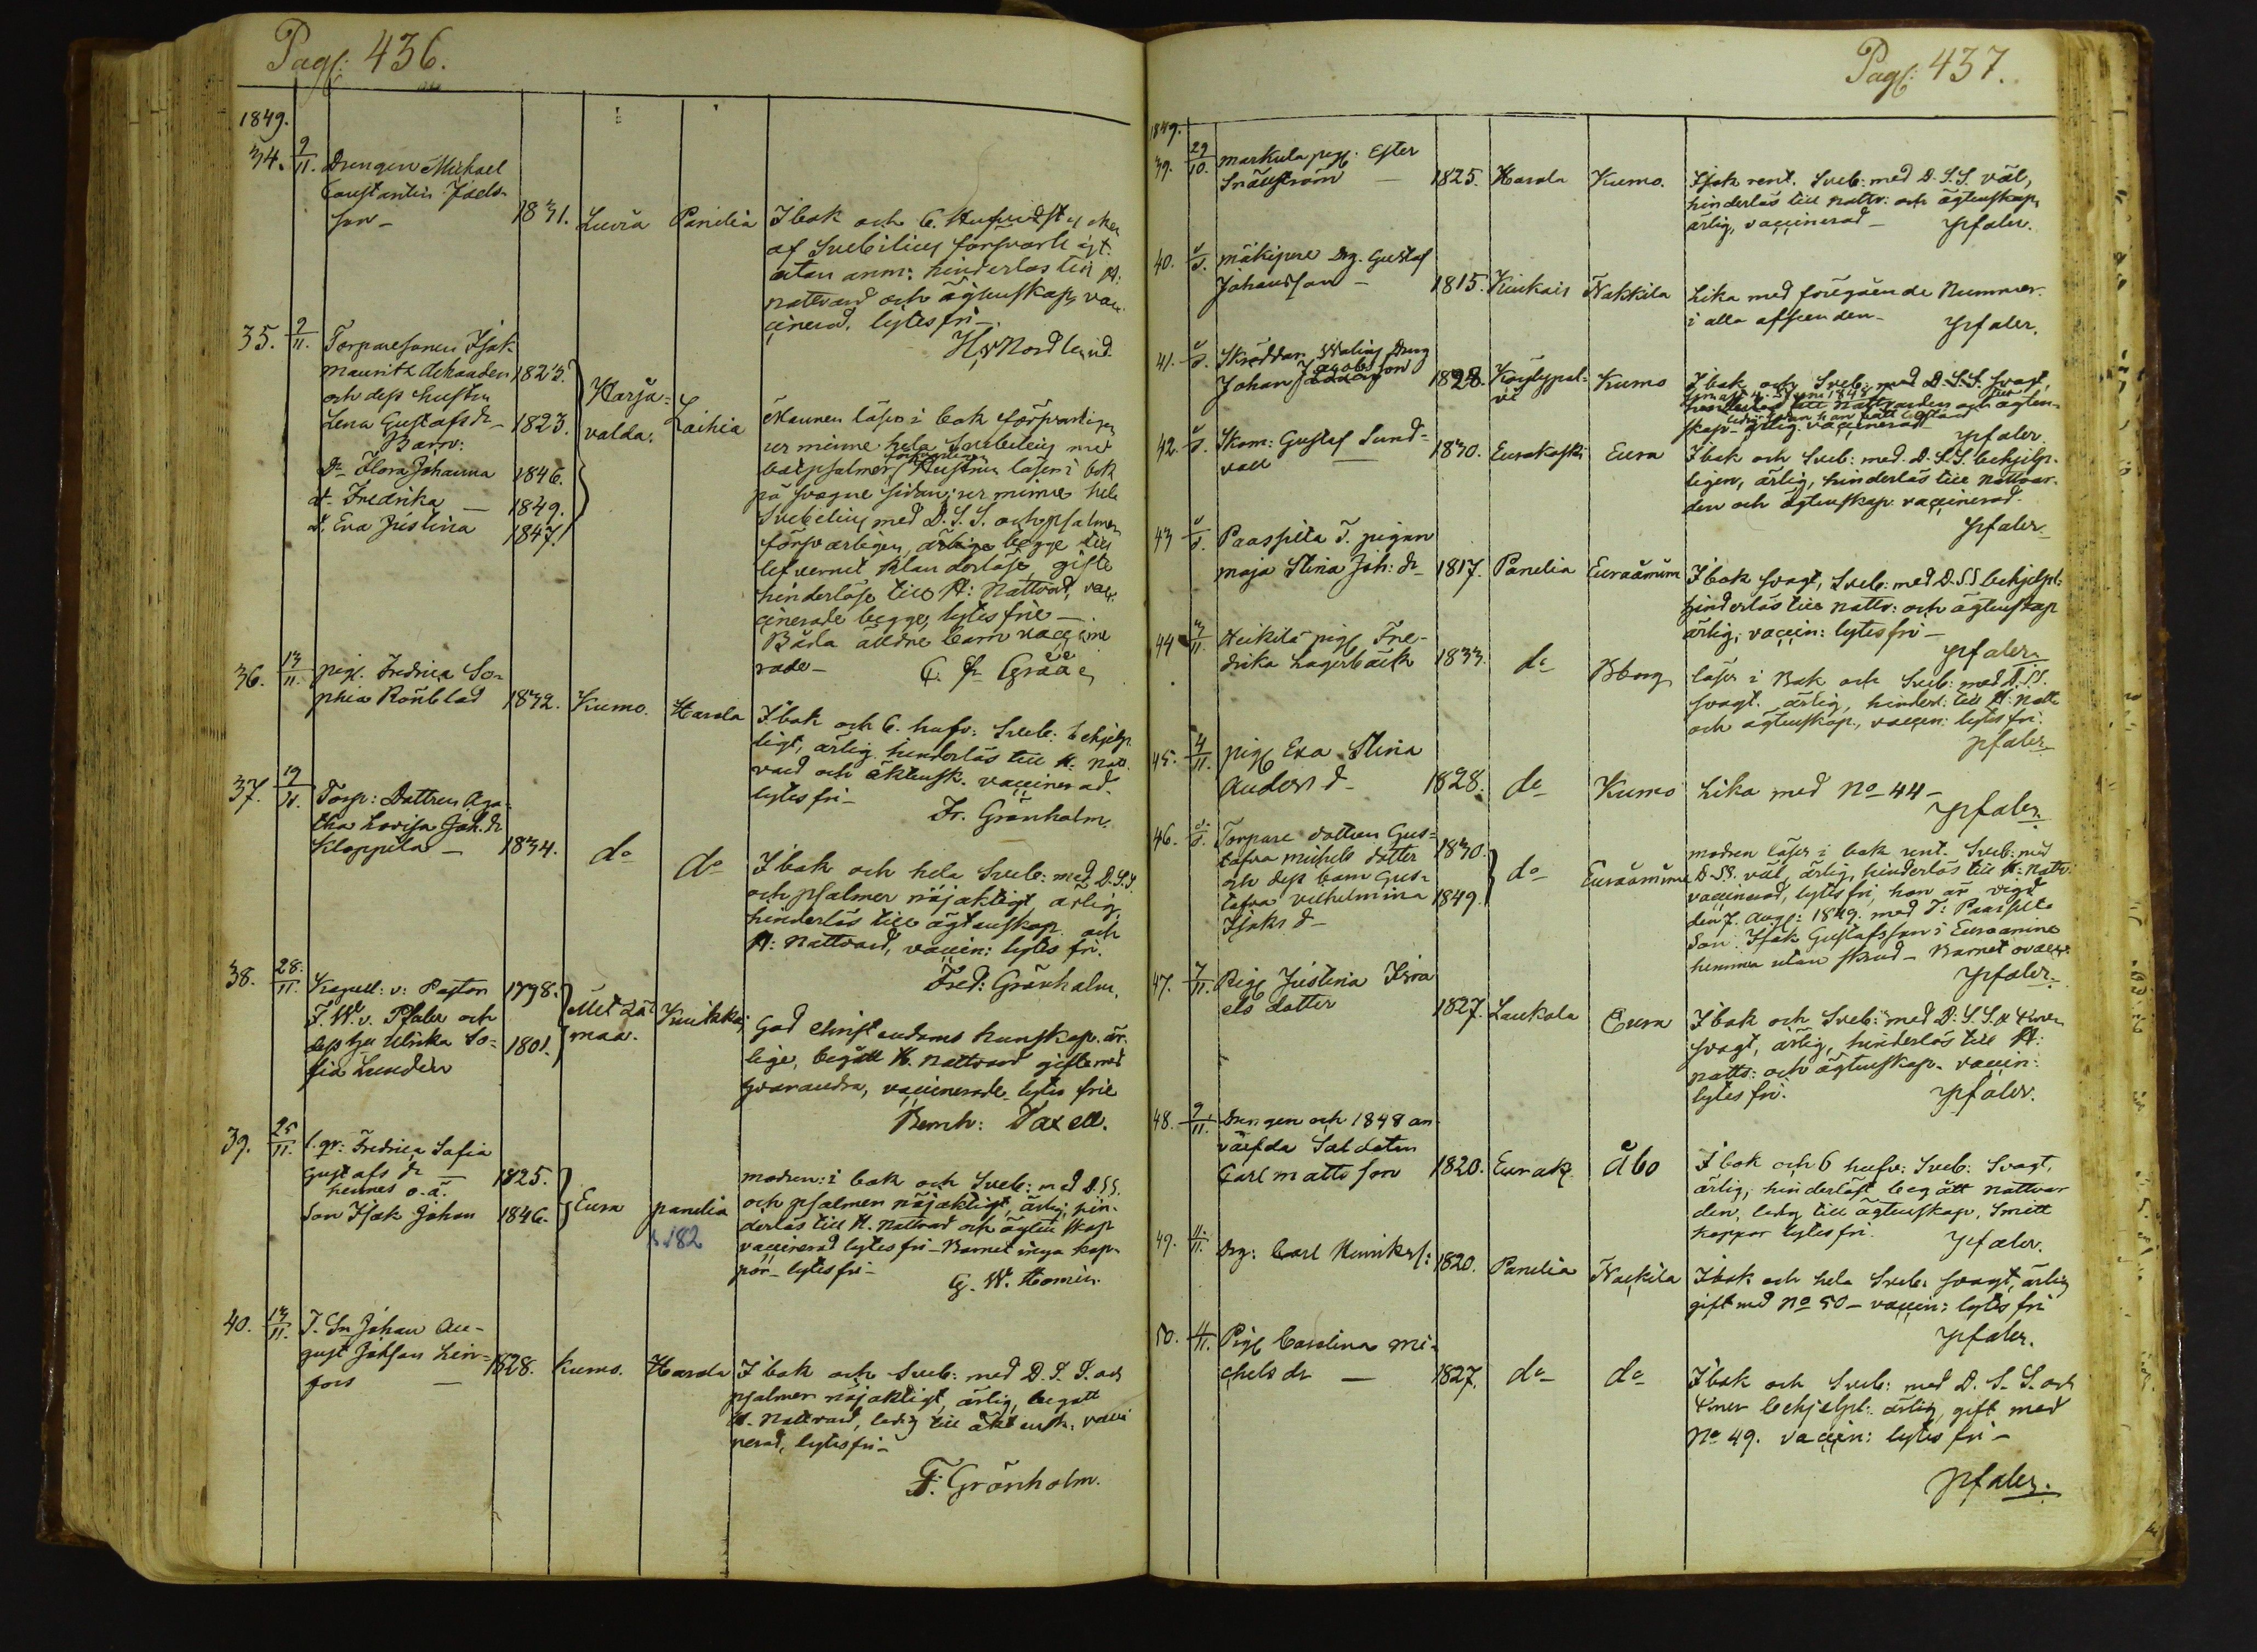 Pag: 436.
1849.
34. 9/11. Drengen Michael
Constantin Joels-
son - 1831. Luvia Panilia I bok och 6. Hufvudst
af Svebilius försvarligt
utan anm: hinderlös till H:
nattvard och ägtenskap, vac-
cinerad, lytesfri -
H Nordlund
35. 9/11. Torparesonen Isak
Mauritz 1823.
och dess hustru
Lena Gustafsdr - 1823. Harja=
valda. Laihia Mannen läser i bok försvarligen
Barn:
Dr Flora Johanna 1846.
dr Fredrika - 1849.
d. Eva Justina 1847.
ur minne hela Svebilius med
botpsalmer försvarligen Hustrun läser i bok
på svagare sidan, ur minne hela
Svebilius med D. S. S. och psalmer
försvarligen, ärlige begge till
lefvernet klanderlöse, gifte
hinderlöse till H: Nattvard, vac-
cinerade begge, lytes frie -
Båda äldre barn vaccine
rade -
36. 13/11. pig. Fredrica So-
phia Rönblad 1832. Kumo. Harola I bok och 6. hufv: Sveb: behjelp
ligt, ärlig hinderlös till H. Natt
vard och äktensk. vaccinerad.
lytes fri -
Fr. Grönholm.
37. 19/11. Torp: Dottren Aga-
tha Lovisa Joh. dr
Kloppila - 1834. do do I bok och hela Sveb: med D. S. S.
och psalmer nöjaktigt, ärlig,
hinderlös till ägtenskap och
H: Nattvard, vaccin: lytes fri.
Fred: Grönholm.
38. 28/11. Kapell: v: Pastor 1798.
F. W. v. Pfaler och
dess hfru Ulrika So- 1801.
fia Lundén
Metzä
maa. Kiukka God christendoms kunskap, är-
lige, begått H. Nattvard gifte med
hvarandra, vaccinerade lytes frie
Bernh: Taxell.
39. 25/11. l. qv: Fredrica Sofia
Gustafs dr - 1825.
hennes o. ä.
Son Isak Johan 1846. Eura panelia
182
modren: i bok och Sveb: med D.SS.
och psalmer nöjaktigt, ärlig, hin-
derlös till H. Nattvard och ägtenskap
vaccinerad lytes fri - Barnet inga kop-
por - lytes fri -
G. W. Homén.
40. 13/11. T. Sn Johan Au-
gust Johsson Lin=
fors - 1828. Kumo. Harola I bok och Sveb: med D. S. S. och
psalmer nöjaktigt, ärlig, begått
H. Nattvard, ledig till äktensk. vacci
nerad, lytes fri -
F. Grönholm.
Pag: 437.
1849.
39. 29/10. Markula pig: Ester
Snällström - 1825. Harola Kumo. I bok rent. Sveb: med D.S.S. väl,
hinderlös till Nattv: och ägtenskap,
ärlig, vaccinerad -
Pfaler.
40. d/d. Mäkipere Drg. Gustaf
Johansson - 1815. Kiukais Nakkila Lika med föregående Nummer
i alla afseenden -
Pfaler.
41. d/d. Skräddar Drng
Johan Jacobsson 1828. Köylypol-
vi Kumo I bok och Sveb: med D.S.S. svagt,
till Nattvarden och ägten-
skap - ärlig. vaccinerad
Pfaler.
42. d/d. Skom: Gustaf Sund=
vall 1830. Eurakoski Eura I bok och Sveb: med D.S.S. behjelp-
ligen, ärlig, hinderlös till Nattvar-
den och ägtenskap. vaccinerad.
Pfaler.
43 d/d. Paaspilta T. pigan
Maja Stina Joh: dr 1817. Panelia Euraåminne I bok svagt, Sveb: med D.SS behjelpl:
hinderlös till Nattv: och ägtenskap
ärlig, vaccin: lytes fri -
Pfaler.
44 3/11. Heikilä pig Fre-
drika Lagerbäck 1833. do Bborg läser i Bok och Sveb: med D.SS.
svagt. ärlig, hinderl: till H: Natt
och ägtenskap., vaccin: lytes fri.
Pfaler.
45. 4/11. pig Eva Stina
Anders d - 1828. do Kumo Lika med No 44 -
Pfaler.
46. d/d. Torpare dottren Gus=
tafva Michels dotter 1830.
och dess barn Gus-
tafva Vilhelmina 1849.
Isaks d -
do Euraåminne
modren läser i bok rent. Sveb: med
D.SS. väl, ärlig, hinderlös till H: Nattv:
vaccinerad, lytes fri, hon är vigd
den 7. Aug: 1849. med T: Paaspilta
Son Isak Gustafsson i Euraominne
hemma utan skrud - Barnet ovacc:
Pfaler.
47. 7/11. Pig Justina Isra
els dotter 1827. Laukola Eura I bok och Sveb: med D: S.S.
svagt, ärlig, hinderlös till H:
Nattv: och ägtenskap. vaccin:
lytes fri.
Pfaler.
48. 9/11. Drengen och 1848 an
värfda Soldaten
Carl Mattsson 1820. Eurak. Åbo I bok och 6 hufv: Sveb: Svagt,
ärlig, hinderlöst begått Nattvar
den, ledig till ägtenskap, Smitt
koppor lytes fri.
Pfaler.
49. 11/11. Drg: Carl Henriks: 1820. Panelia Nackila I bok och hela Sveb: svagt, ärlig
gift med No 50 - vaccin: lytes fri
Pfaler.
50. 11/11. Pig Carolina Mi-
chels dr - 1827. do do I bok och Sveb: med D. S. S. och
behjelpl: ärlig, gift med
No 49. vaccin: lytes fri -
Pfaler.